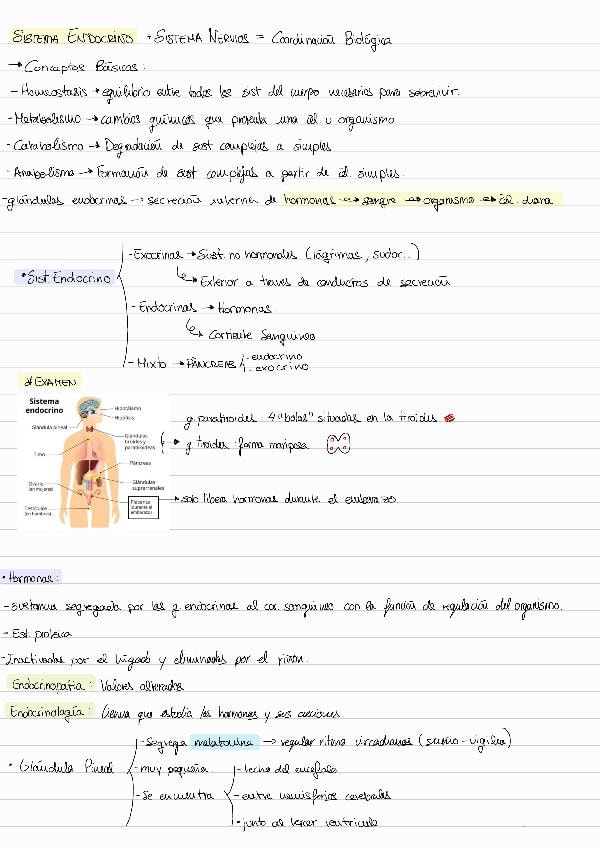 SISTEMA ENDOCRINO + SISTEMA NERVIOS = Coordinación Biológica
→ Conceptos Básicos:
- Homeostasis → equilibrio entre todos los sist del cuerpo necesarios para sobrevivir.
- Metabolismo → cambios químicos que presenta una cél u organismo
- Catabolismo → Degradación de sust complejas a simples
- Anabolismo → Formación de sust complejas a partir de cél. simples.
- glándulas endocrinas → secreción interna de hormonas → sangre → organismo → cél. diana
• Sist. Endocrino
- Exocrinas → Sust. no hormonales (lágrimas, sudor...)
↳ Exterior a través de conductos de secreción
- Endocrinas → Hormonas
↳ Corriente Sanguíneo
- Mixto → PÁNCREAS
- endocrino
- exocrino
EXAMEN
Sistema endocrino
Hipotálamo
Hipófisis
Glándula pineal
Glándulas tiroides y paratiroides
Timo
Páncreas
Glándulas suprarrenales
Ovario (en mujeres)
Placenta (durante el embarazo)
Testículos (en hombres)
g. paratiroides: 4 "bolas" situadas en la tiroides
g tiroides: forma mariposa
→ solo libera hormonas durante el embarazo
• Hormonas:
- Sustancia segregada por las g endocrinas al cor. sanguíneo con la función de regulación del organismo.
- Est. proteica
- Inactivadas por el hígado y eliminadas por el riñón.
Endocrinopatía: Valores alterados
Endocrinología: Ciencia que estudia las hormonas y sus acciones
• Glándula Pineal
- Segrega melatonina → regular ritmo circadianos (sueño-vigilia)
- muy pequeña
- Se encuentra
- techo del encéfalo
- entre hemisferios cerebrales
- junto al tercer ventrículo